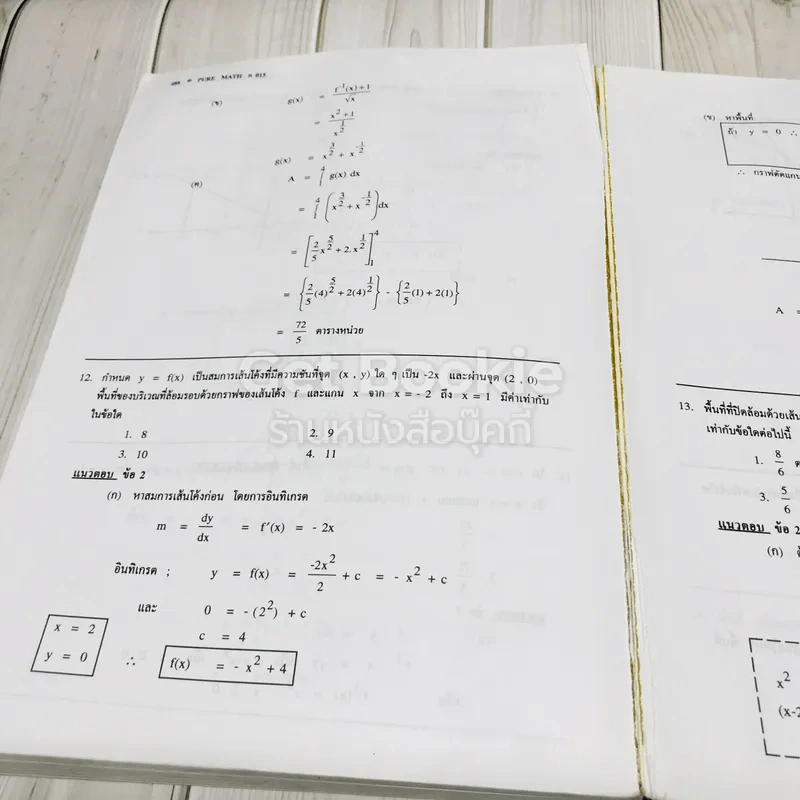 PURE MATH
(ข) g(x) = f⁻¹(x)+1 / √x
= x² + 1 / x^(1/2)
g(x) = x^(3/2) + x^(-1/2)
(ค) A = ∫₁⁴ g(x) dx
= ∫₁⁴ (x^(3/2) + x^(-1/2)) dx
= [2/5 x^(5/2) + 2.x^(1/2)]₁⁴
= {2/5 (4)^(5/2) + 2(4)^(1/2)} - {2/5 (1) + 2(1)}
= 72/5 ตารางหน่วย
12. กำหนด y = f(x) เป็นสมการเส้นโค้งที่มีความชันที่จุด (x , y) ใด ๆ เป็น -2x และผ่านจุด (2 , 0)
พื้นที่ของบริเวณที่ล้อมรอบด้วยกราฟของเส้นโค้ง f และแกน x จาก x = - 2 ถึง x = 1 มีค่าเท่ากับ
ในข้อใด
1. 8 2. 9
3. 10 4. 11
แนวตอบ ข้อ 2
(ก) หาสมการเส้นโค้งก่อน โดยการอินทิเกรต
m = dy/dx = f′(x) = - 2x
อินทิเกรต ; y = f(x) = -2x²/2 + c = - x² + c
และ 0 = - (2²) + c
c = 4
x = 2
y = 0
∴ f(x) = - x² + 4
Get Bookie
ร้านหนังสือบุ๊คกี้
(ข) หาพื้นที่
ถ้า y = 0 ∴
∴ กราฟตัดแกน
A =
13. พื้นที่ที่ปิดล้อมด้วยเส้น
เท่ากับข้อใดต่อไปนี้
1. 8/6
3. 5/6
แนวตอบ ข้อ 2
(ก)
x²
(x-2